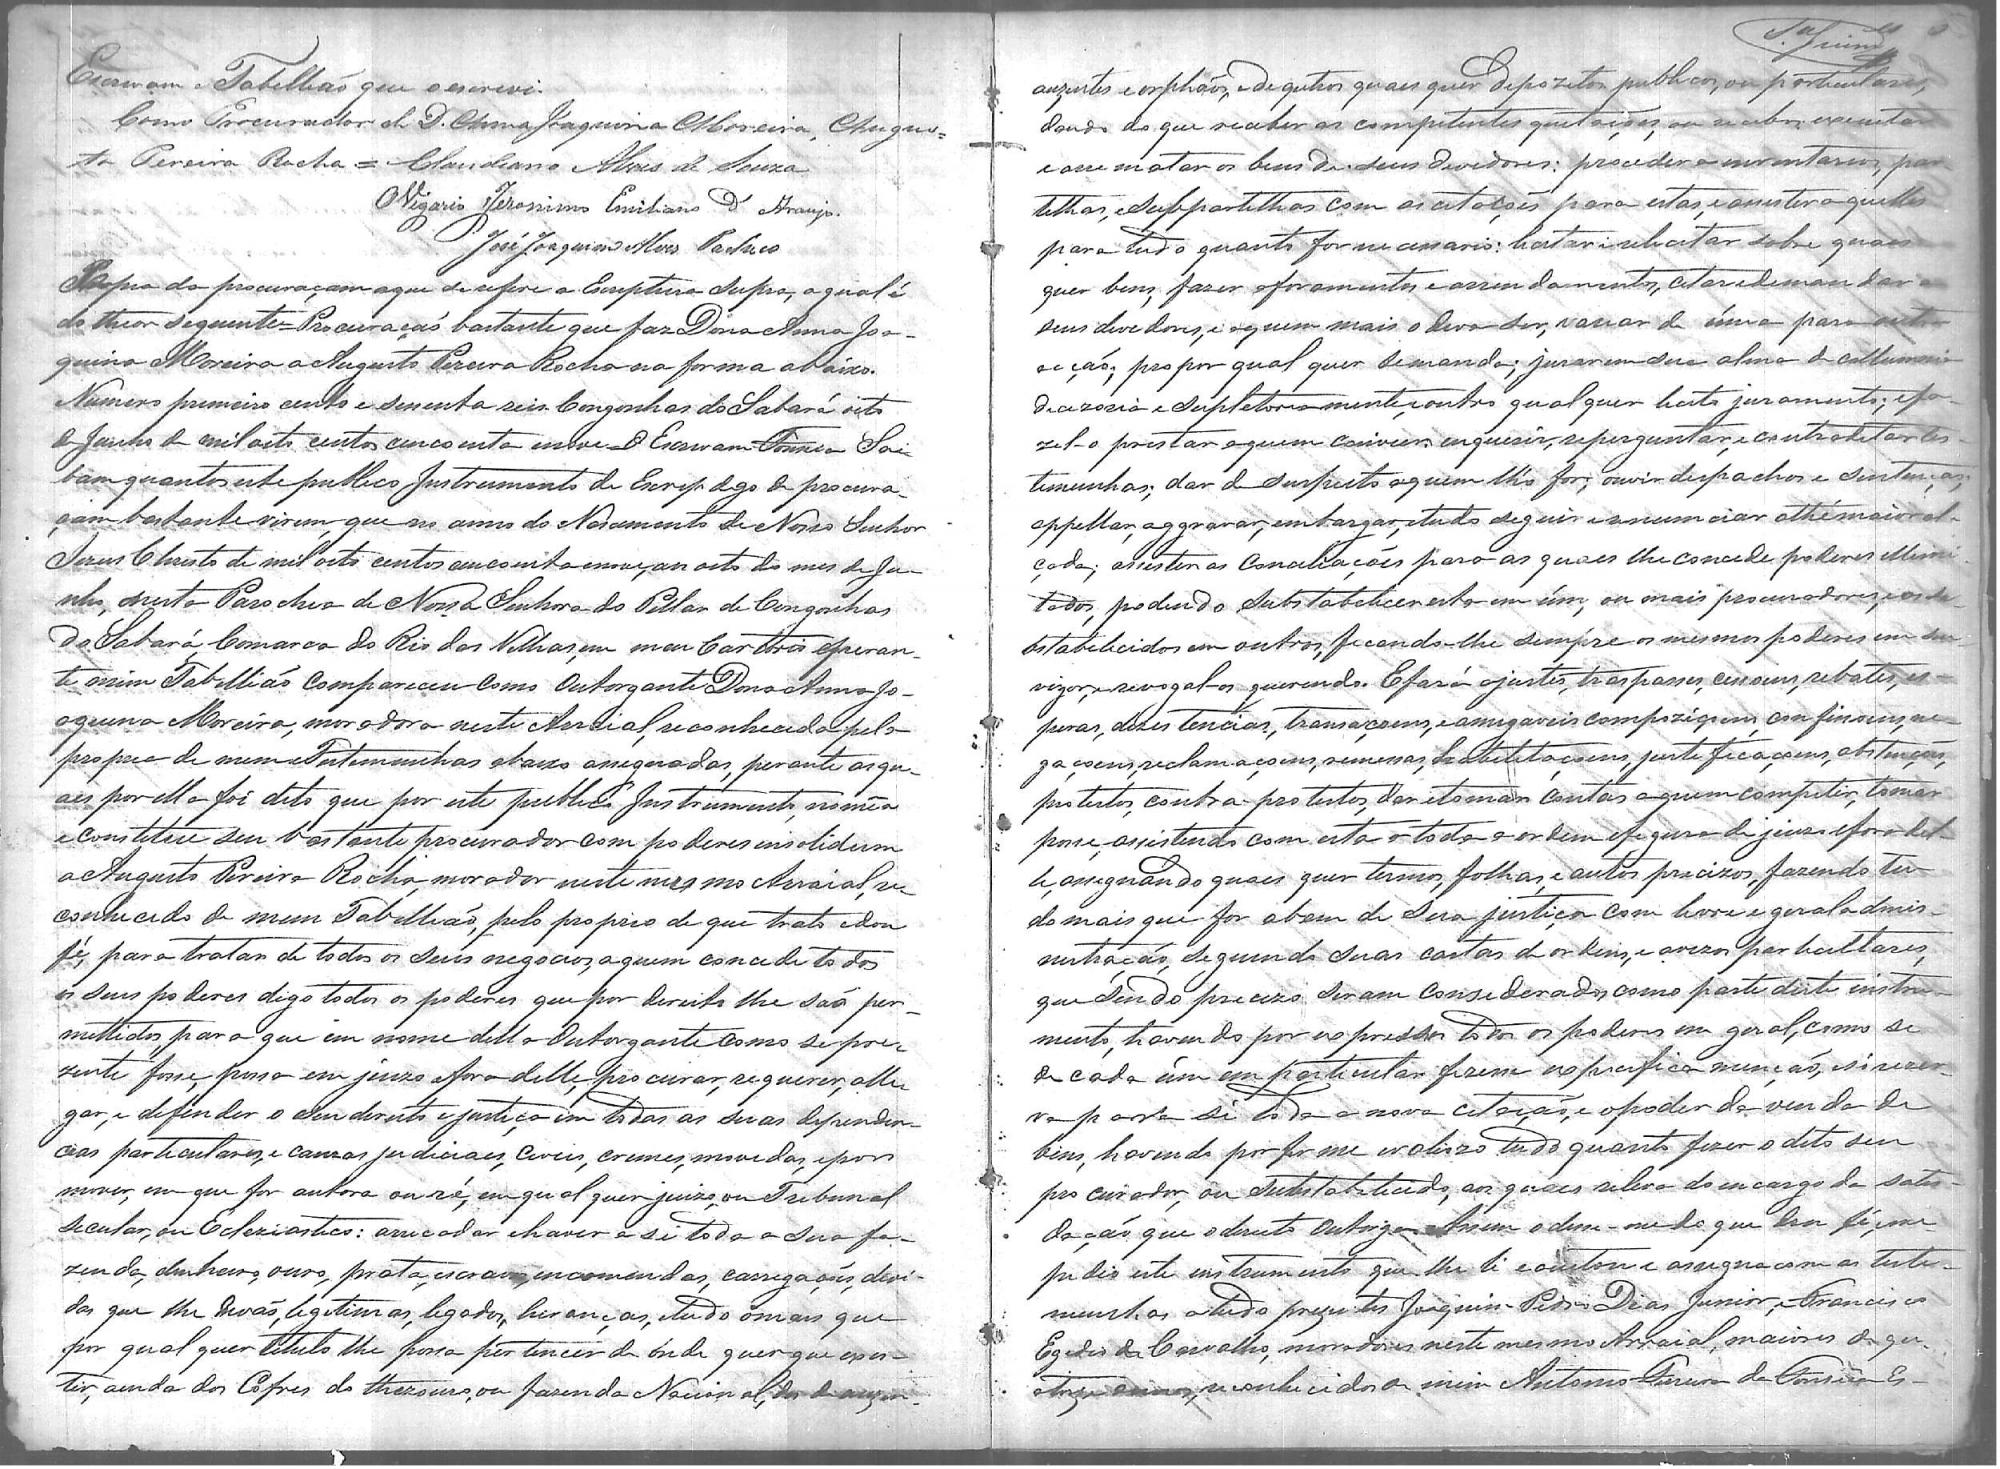 Escrivam e Tabelliaõ que o escrevi.
Como Procurador de D. Anna Joaquina Moreira, Augus=
to Pereira Rocha = Claudiano Alves de Souza
O Vigario Jeronimo Emiliano D' Araujo.
José Joaquim Alves Pacheco
Copia da procuraçam aque se refere a Escriptura supra, a qual é
do theor seguinte = Procuraçaõ bastante que faz Dona Anna Joa-
quina Moreira a Augusto Pereira Rocha na forma abaixo.
Numero primeiro cento e sessenta reis Congonhas do Sabará oito
de Junho de mil oito centos cincoenta enove = O Escrivam Fonseca Sai
bam quantos este publico Instrumento de Escrip. digo de procura-
çam bastante virem, que no anno do Nascimento de Nosso Senhor
Jezus Christo de mil oito centos cincoenta enove, aos oito do mes de Ju-
nho, nesta Parochia de Nossa Senhora do Pillar de Congonhas
do Sabará Comarca do Rio das Velhas, em meu Cartorio eperan-
te mim Tabelliaõ compareceu como Outorgante Dona Anna Jo-
aquina Moreira, moradora neste Arraial, reconhecida pela
propria de mim e Testemunhas abaixo assignadas, perante as qu-
aes por ella foi dito que por este publico Instrumento, nomêa
e constitue seu bastante procurador com poderes insolidum
a Augusto Pereira Rocha, morador neste mesmo Arraial, re
conhecido de mim Tabelliaõ, pelo proprio de que trato edou
fé, para tratar de todos os seus negocios, aquem concede todos
os seus poderes digo todos os poderes que por direito lhe saõ per-
mettidos, para que em nome della Outorgante como se pre-
zente fosse, possa em juizo efora delle, procurar, requerer, alle
gar, e defender o seu direito e justiça em todas as suas dependen-
cias particulares, e cauzas judiciaes, civeis, crimes, movidas, epor
mover, em que for autora ou ré, em qual quer juizo, ou Tribunal
secular, ou Ecleziastico: arrecadar ehaver a si toda a sua fa-
zenda, dinheiro, ouro, prata, escravos, encomendas, carregaçoẽs, devi-
das que lhe devaõ, legitimas, legados, heranças, etudo o mais que
por qual quer titulo lhe possa pertencer de ónde quer que exis-
tir, ainda dos Cofres do thezouro, ou fazenda Nacional, dos de auzen-
auzentes eorphaõs, ede outros quaes quer depozitos publicos, ou particulares,
dando do que receber as competentes quitaçoẽs, ou recibos, executar
e arrematar os bens de seus devedores: proceder a inventarios, par
telhas, esubpartelhas com as citaçoẽs para estas, e assistir a quelles
para tudo quanto for necessario: licitar e relicitar sobre quaes
quer bens, fazer aforamentos e arrendamentos, citar e demandar a
seus devedores, e aquem mais o deva ser, variar de úma para outra
acçaõ; propor qual quer demanda; jurar em sua alma de callumnia
decizoria e supletoriamente, e outro qual quer licito juramento; efa-
zel-o prestar aquem convier: enquerir, reperguntar, e contraditar tes-
temunhas; dar de suspeito aquem lhe for; ouvir despachos e sentenças,
appellar, aggravar, embargar, etudo seguir e renunciar athé maior al-
çada; assistir as conciliaçoẽs para as quaes lhe concede poderes illimi
tados, podendo substabelecer esta em úm, ou mais procuradores, e os su-
bstabelecidos em outros, ficando-lhe sempre os mesmos poderes em seu
vigor, e revogal-os querendo. E fará ajustes, traspasses, cessoens, rebates, es-
peras, dezistencias, transaçoens, e amigaveis compoziçoens, confissoens, ne-
gaçoens, reclamaçoens, remessas, habilitaçoens, justificaçoens, abstençoẽs,
protestos, contra protestos, dar etomar contas aquem competir, tomar
posse, assistindo com esta a toda a ordem efigura de juizo efora del-
le, assignando quaes quer termos, folhas, e autos precizos, fazendo tu-
do mais que for abem de sua justiça com livre e geral admi-
nistraçaõ, seguindo suas cartas de ordens, e avizos particullares,
que sendo precizo seram considerados como parte deste instru-
mento, havendo por expressos todos os poderes em geral, como se
de cada úm em particular fizesse expecifica mençaõ, e si rezer-
va para si toda a nova citaçaõ, e o poder da venda de
bens, havendo por firme evaliozo tudo quanto fizer o dito seu
procurador, ou substabelecido, aos quaes releva do encargo da satis-
daçaõ que o direito Outorga. Assim o disse-me do que dou fé, e me
pedio este instrumento que lhe li e aceitou e assigna com as teste-
munhas atudo prezentes Joaquim Pedro Dias Junior, e Francisco
Egidio de Carvalho, moradores neste mesmo Arraial, maiores de qu-
atorze annos, reconhecidos de mim Antonio Pereira da Fonseca Es-